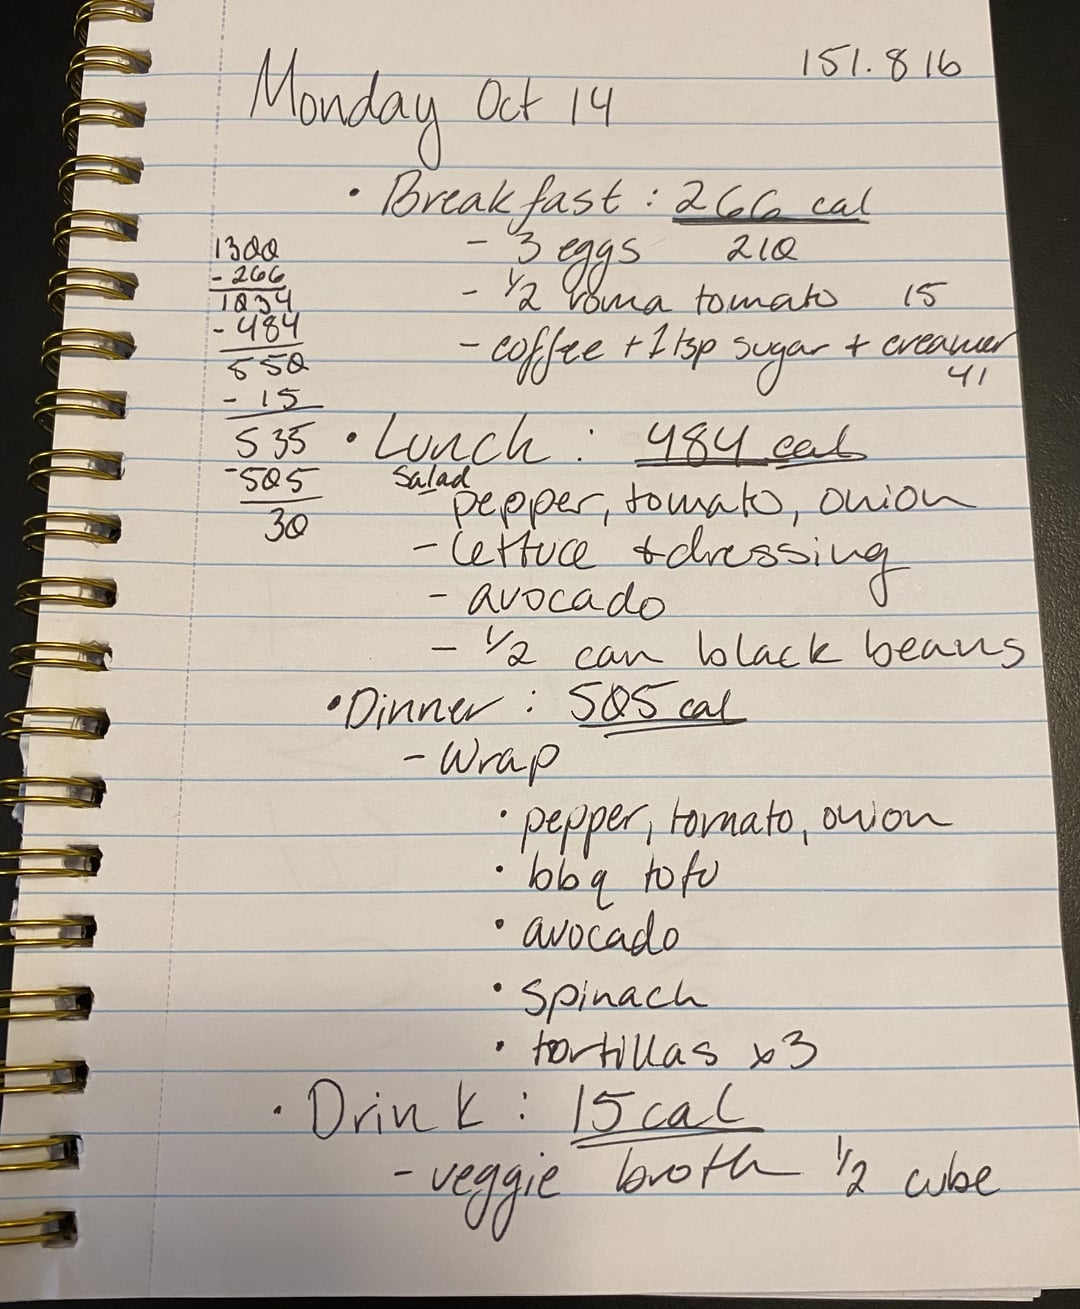 151.8 lb
Monday Oct 14
• Breakfast : 266 cal
- 3 eggs 210
- 1/2 roma tomato 15
- coffee + 1 tsp sugar + creamer
41
1300
- 266
1034
- 484
550
- 15
535
- 505
30
• Lunch : 484 cal
Salad
pepper, tomato, onion
- lettuce + dressing
- avocado
- 1/2 can black beans
• Dinner : 505 cal
- Wrap
• pepper, tomato, onion
• bbq tofu
• avocado
• spinach
• tortillas x3
• Drink : 15 cal
- veggie broth 1/2 cube